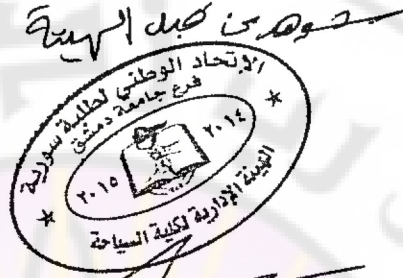 شوهد من قبل الهيئة
الاتحاد الوطني لطلبة سورية
فرع جامعة دمشق
٢٠١٤
٢٠١٥
الهيئة الإدارية لكلية السياحة